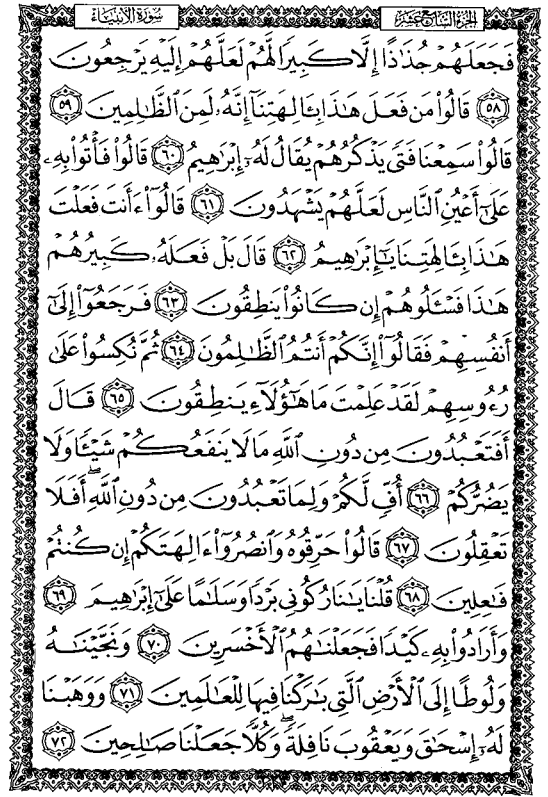 الجزء السابع عشر
سورة الأنبياء
فَجَعَلَهُمْ جُذَٰذًا إِلَّا كَبِيرًا لَّهُمْ لَعَلَّهُمْ إِلَيْهِ يَرْجِعُونَ
﴿٥٨﴾ قَالُوا۟ مَن فَعَلَ هَٰذَا بِـَٔالِهَتِنَآ إِنَّهُۥ لَمِنَ ٱلظَّٰلِمِينَ ﴿٥٩﴾
قَالُوا۟ سَمِعْنَا فَتًى يَذْكُرُهُمْ يُقَالُ لَهُۥٓ إِبْرَٰهِيمُ ﴿٦٠﴾ قَالُوا۟ فَأْتُوا۟ بِهِۦ
عَلَىٰٓ أَعْيُنِ ٱلنَّاسِ لَعَلَّهُمْ يَشْهَدُونَ ﴿٦١﴾ قَالُوٓا۟ ءَأَنتَ فَعَلْتَ
هَٰذَا بِـَٔالِهَتِنَا يَٰٓإِبْرَٰهِيمُ ﴿٦٢﴾ قَالَ بَلْ فَعَلَهُۥ كَبِيرُهُمْ
هَٰذَا فَسْـَٔلُوهُمْ إِن كَانُوا۟ يَنطِقُونَ ﴿٦٣﴾ فَرَجَعُوٓا۟ إِلَىٰٓ
أَنفُسِهِمْ فَقَالُوٓا۟ إِنَّكُمْ أَنتُمُ ٱلظَّٰلِمُونَ ﴿٦٤﴾ ثُمَّ نُكِسُوا۟ عَلَىٰ
رُءُوسِهِمْ لَقَدْ عَلِمْتَ مَا هَٰٓؤُلَآءِ يَنطِقُونَ ﴿٦٥﴾ قَالَ
أَفَتَعْبُدُونَ مِن دُونِ ٱللَّهِ مَا لَا يَنفَعُكُمْ شَيْـًٔا وَلَا
يَضُرُّكُمْ ﴿٦٦﴾ أُفٍّ لَّكُمْ وَلِمَا تَعْبُدُونَ مِن دُونِ ٱللَّهِ ۖ أَفَلَا
تَعْقِلُونَ ﴿٦٧﴾ قَالُوا۟ حَرِّقُوهُ وَٱنصُرُوٓا۟ ءَالِهَتَكُمْ إِن كُنتُمْ
فَٰعِلِينَ ﴿٦٨﴾ قُلْنَا يَٰنَارُ كُونِى بَرْدًا وَسَلَٰمًا عَلَىٰٓ إِبْرَٰهِيمَ ﴿٦٩﴾
وَأَرَادُوا۟ بِهِۦ كَيْدًا فَجَعَلْنَٰهُمُ ٱلْأَخْسَرِينَ ﴿٧٠﴾ وَنَجَّيْنَٰهُ
وَلُوطًا إِلَى ٱلْأَرْضِ ٱلَّتِى بَٰرَكْنَا فِيهَا لِلْعَٰلَمِينَ ﴿٧١﴾ وَوَهَبْنَا
لَهُۥٓ إِسْحَٰقَ وَيَعْقُوبَ نَافِلَةً ۖ وَكُلًّا جَعَلْنَا صَٰلِحِينَ ﴿٧٢﴾